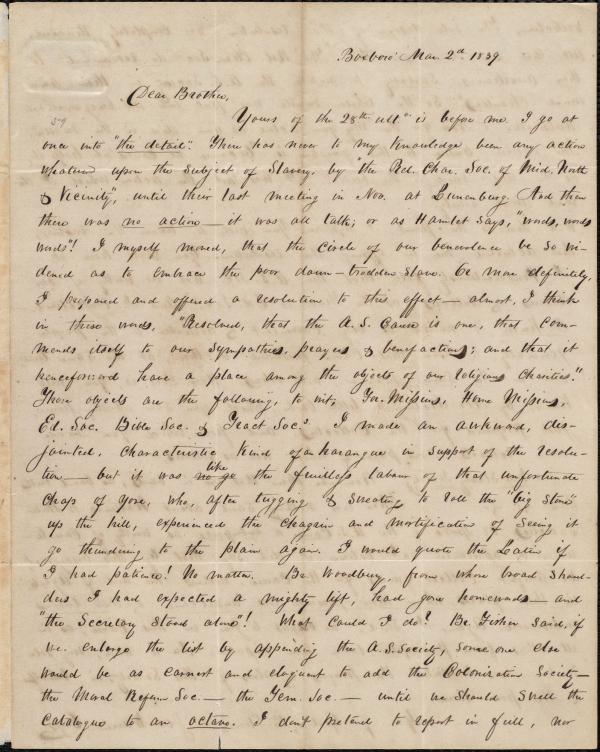 Boxboro' Mar. 2d. 1839.
Dear Brother,
Yours of the 28th ult. is before me. I go at
once into "the detail". There has never to my knowledge been any action
whatever upon the subject of Slavery, by "the Rel. Char. Soc. of Mid. North
& Vicinity", until their last meeting in Nov. at Lunenburg. And then
there was no action — it was all talk; or as Hamlet says, "words, words
words"! I myself moved, that the circle of our benevolence be so wi-
dened as to embrace the poor down-trodden slave. Or more definitely,
I prepared and offered a resolution to this effect — almost, I think
in these words, "Resolved, that the A. S. Cause is one, that com-
mends itself to our sympathies, prayers & benefactions; and that it
henceforward have a place among the objects of our religious charities."
Those objects are the following, to wit, For. Missions, Home Missions,
Ed. Soc. Bible Soc. & Tract Soc.s I made an awkward, dis-
jointed, characteristic kind of an harangue in support of the resolu-
tion — but it was no go like the fruitless labour of that unfortunate
chap of yore, who, after tugging & sweating to roll the "big stone"
up the hill, experienced the chagrin and mortification of seeing it
go thundering to the plain again. I would quote the Latin if
I had patience! No matter. Br. Woodbury, from whose broad shoul-
ders I had expected a mighty lift, had gone homewards — and
"the Secretary stood alone"! What could I do? Br. Fisher said, if
we enlarge the list by appending the A. S. Society, some one else
would be as earnest and eloquent to add the Colonization Society —
the Moral Reform Soc. — the Tem. Soc. — until we should swell the
catalogue to an octavo. I don't pretend to report in full, nor